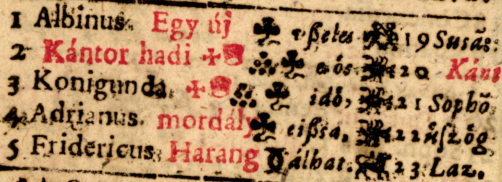 1 Albinus. Egy új ꝛßeles 19 Susāː
2 Kántor hadi eós 20 Kánt
3 Konigunda. idô, 21 Sophō
4 Adrianus. mordály eißta. 22
5 Fridericus. Harang álhat. 23 Laz.